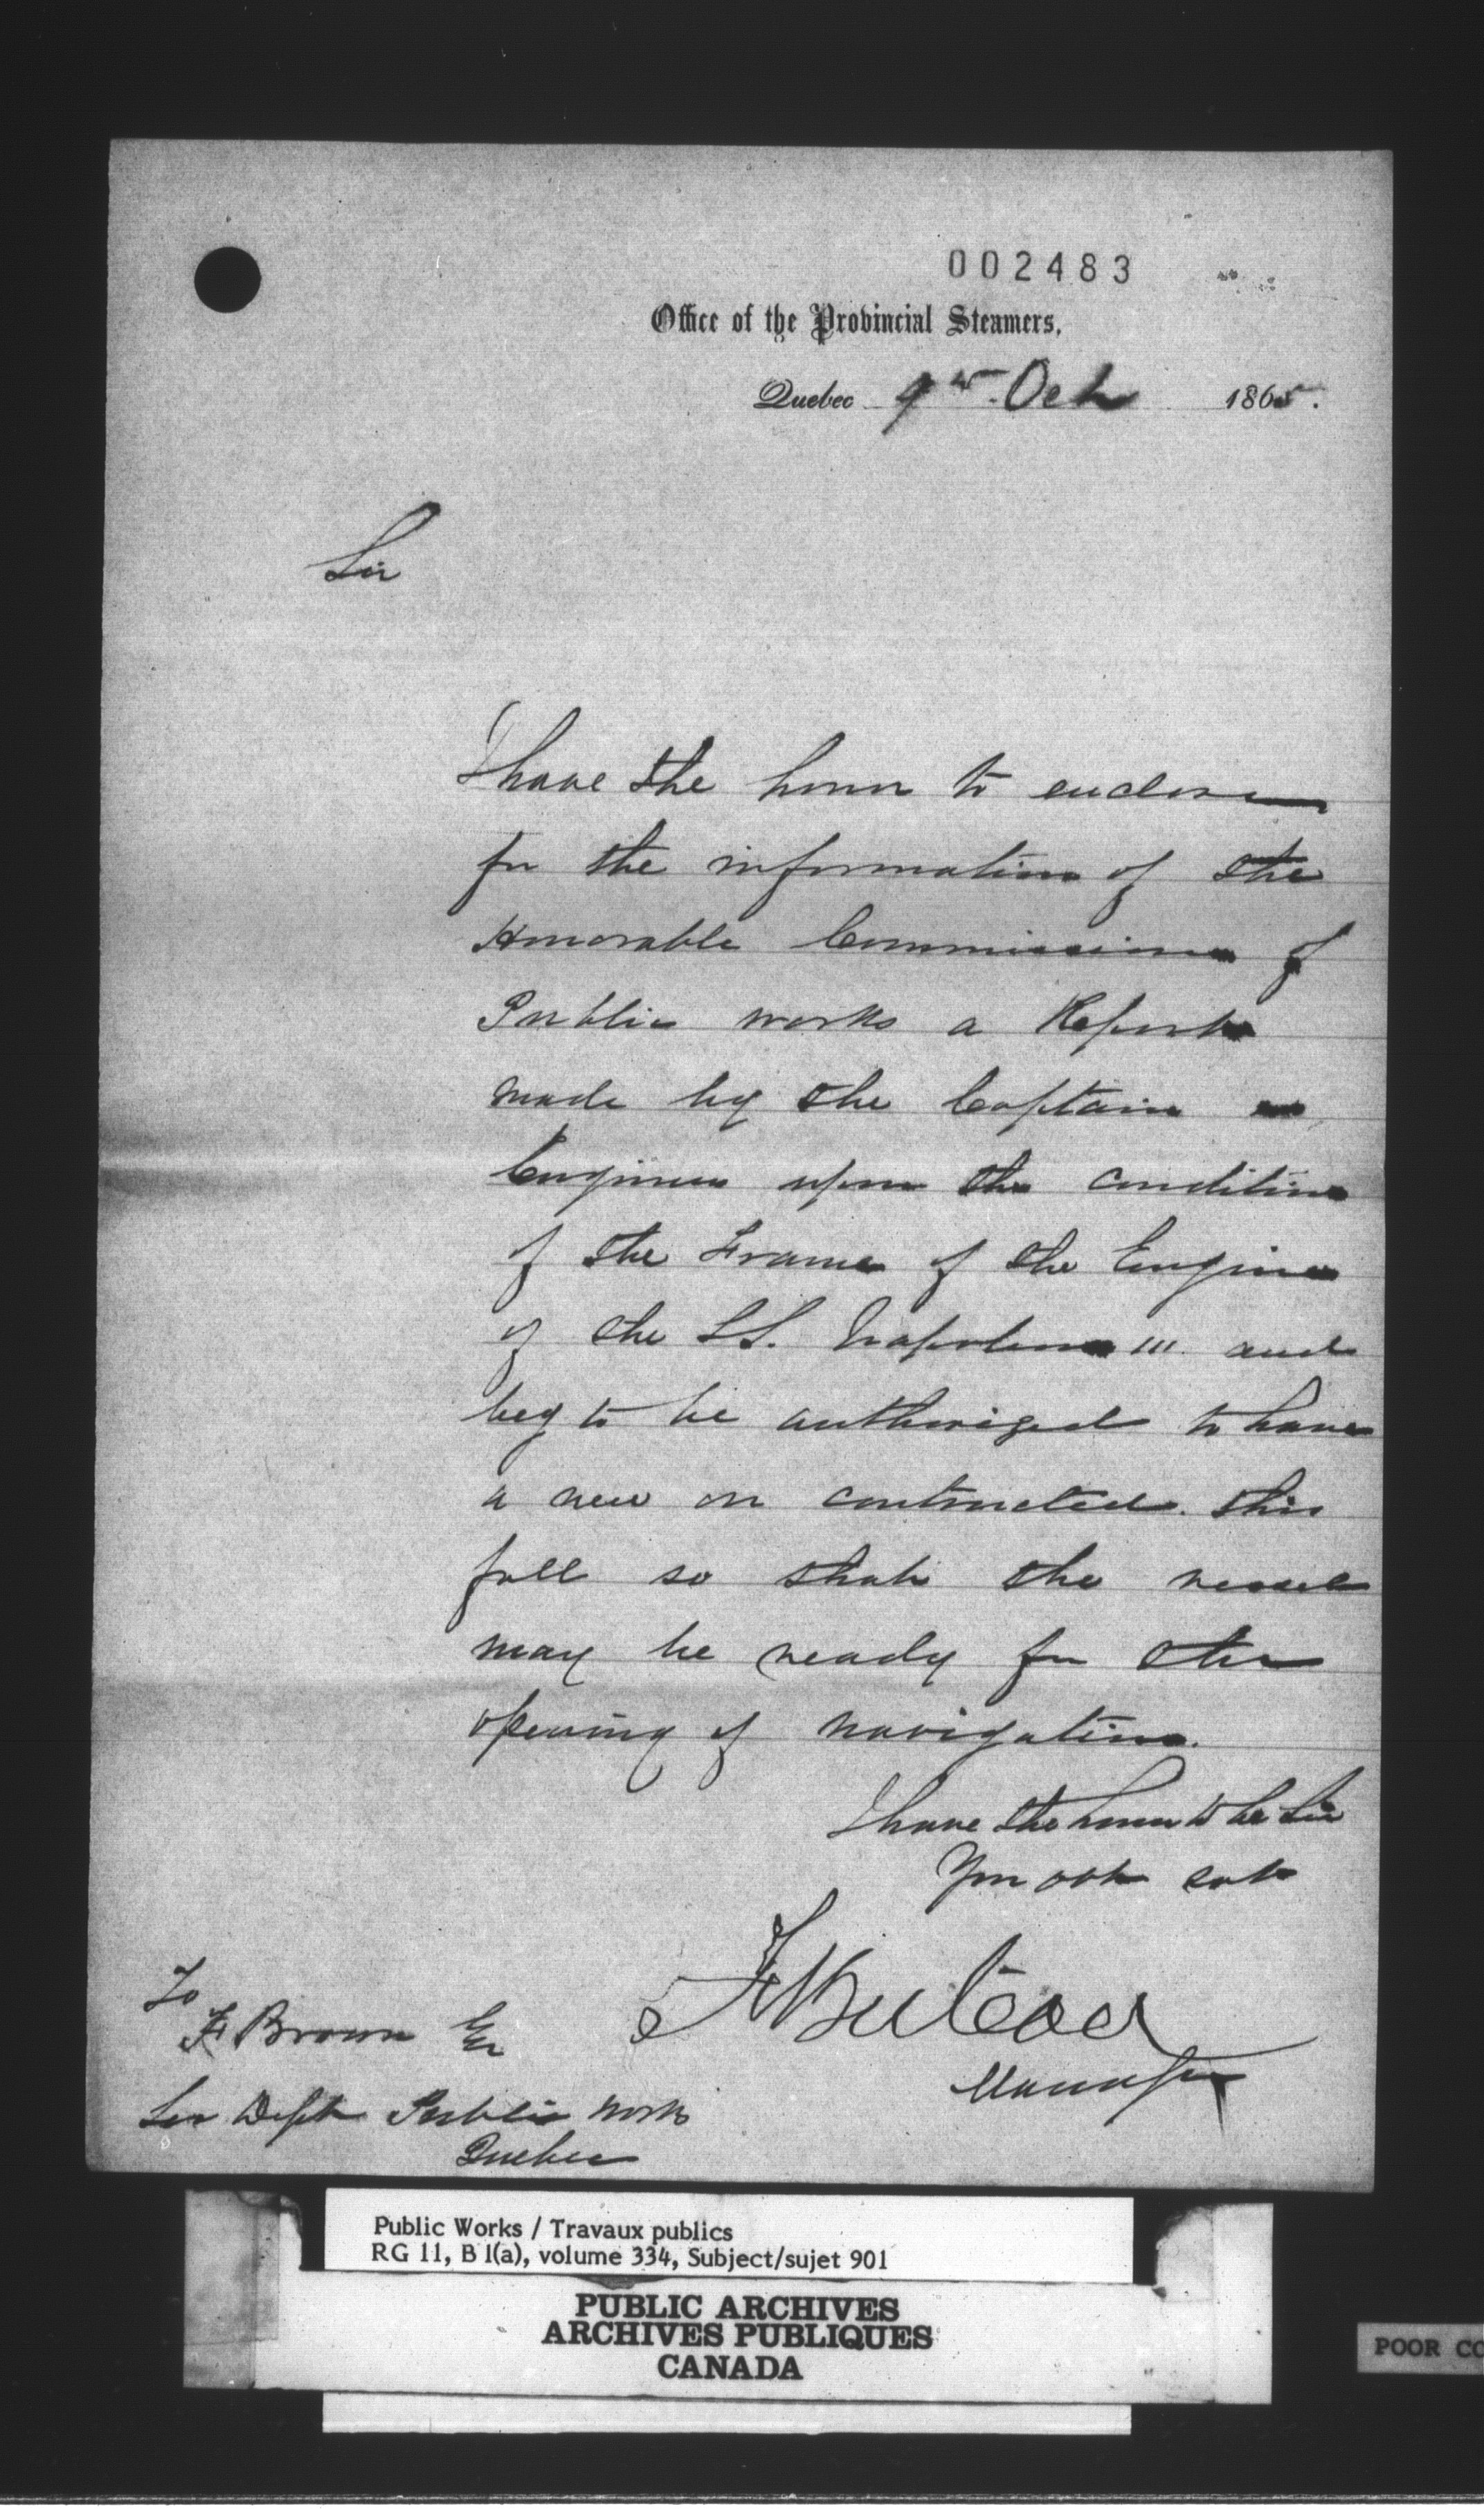 002483
Office of the Provincial Steamers,
Quebec 9th Oct 1865.
Sir
I have the honor to enclose
for the information of the
Honorable Commissioner of
Public works a Report
made by the Captain
Engineer upon the condition
of the Frame of the Engine
of the SS. Napoleon III and
beg to be authorized to have
a new on contructed this
fall so that the vessel
may be ready for the
opening of navigation.
I have the honor to be Sir
Your obt
F Buteau
Manager
To
F Brown
Sec Dept Public Works
Quebec
Public Works / Travaux publics
RG 11, B 1(a), volume 334, Subject/sujet 901
PUBLIC ARCHIVES
ARCHIVES PUBLIQUES
CANADA
POOR CO